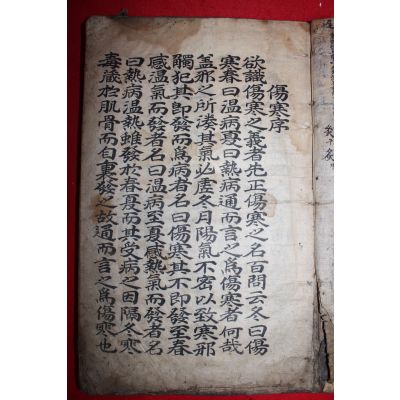 傷寒序
欲識傷寒之義者先正傷寒之名百問云冬曰傷
寒春曰温病夏曰熱病通而言之爲傷寒者何哉
盖邪之所湊其氣必虛冬月陽氣不密以致寒邪
觸犯其即發而爲病者名曰傷寒其不即發至春
感温氣而發者名曰温病至夏感熱氣而發者名
曰熱病温熱雖發於春夏而其受病之因隔冬寒
毒藏於肌骨而自裏發之故通而言之爲傷寒也